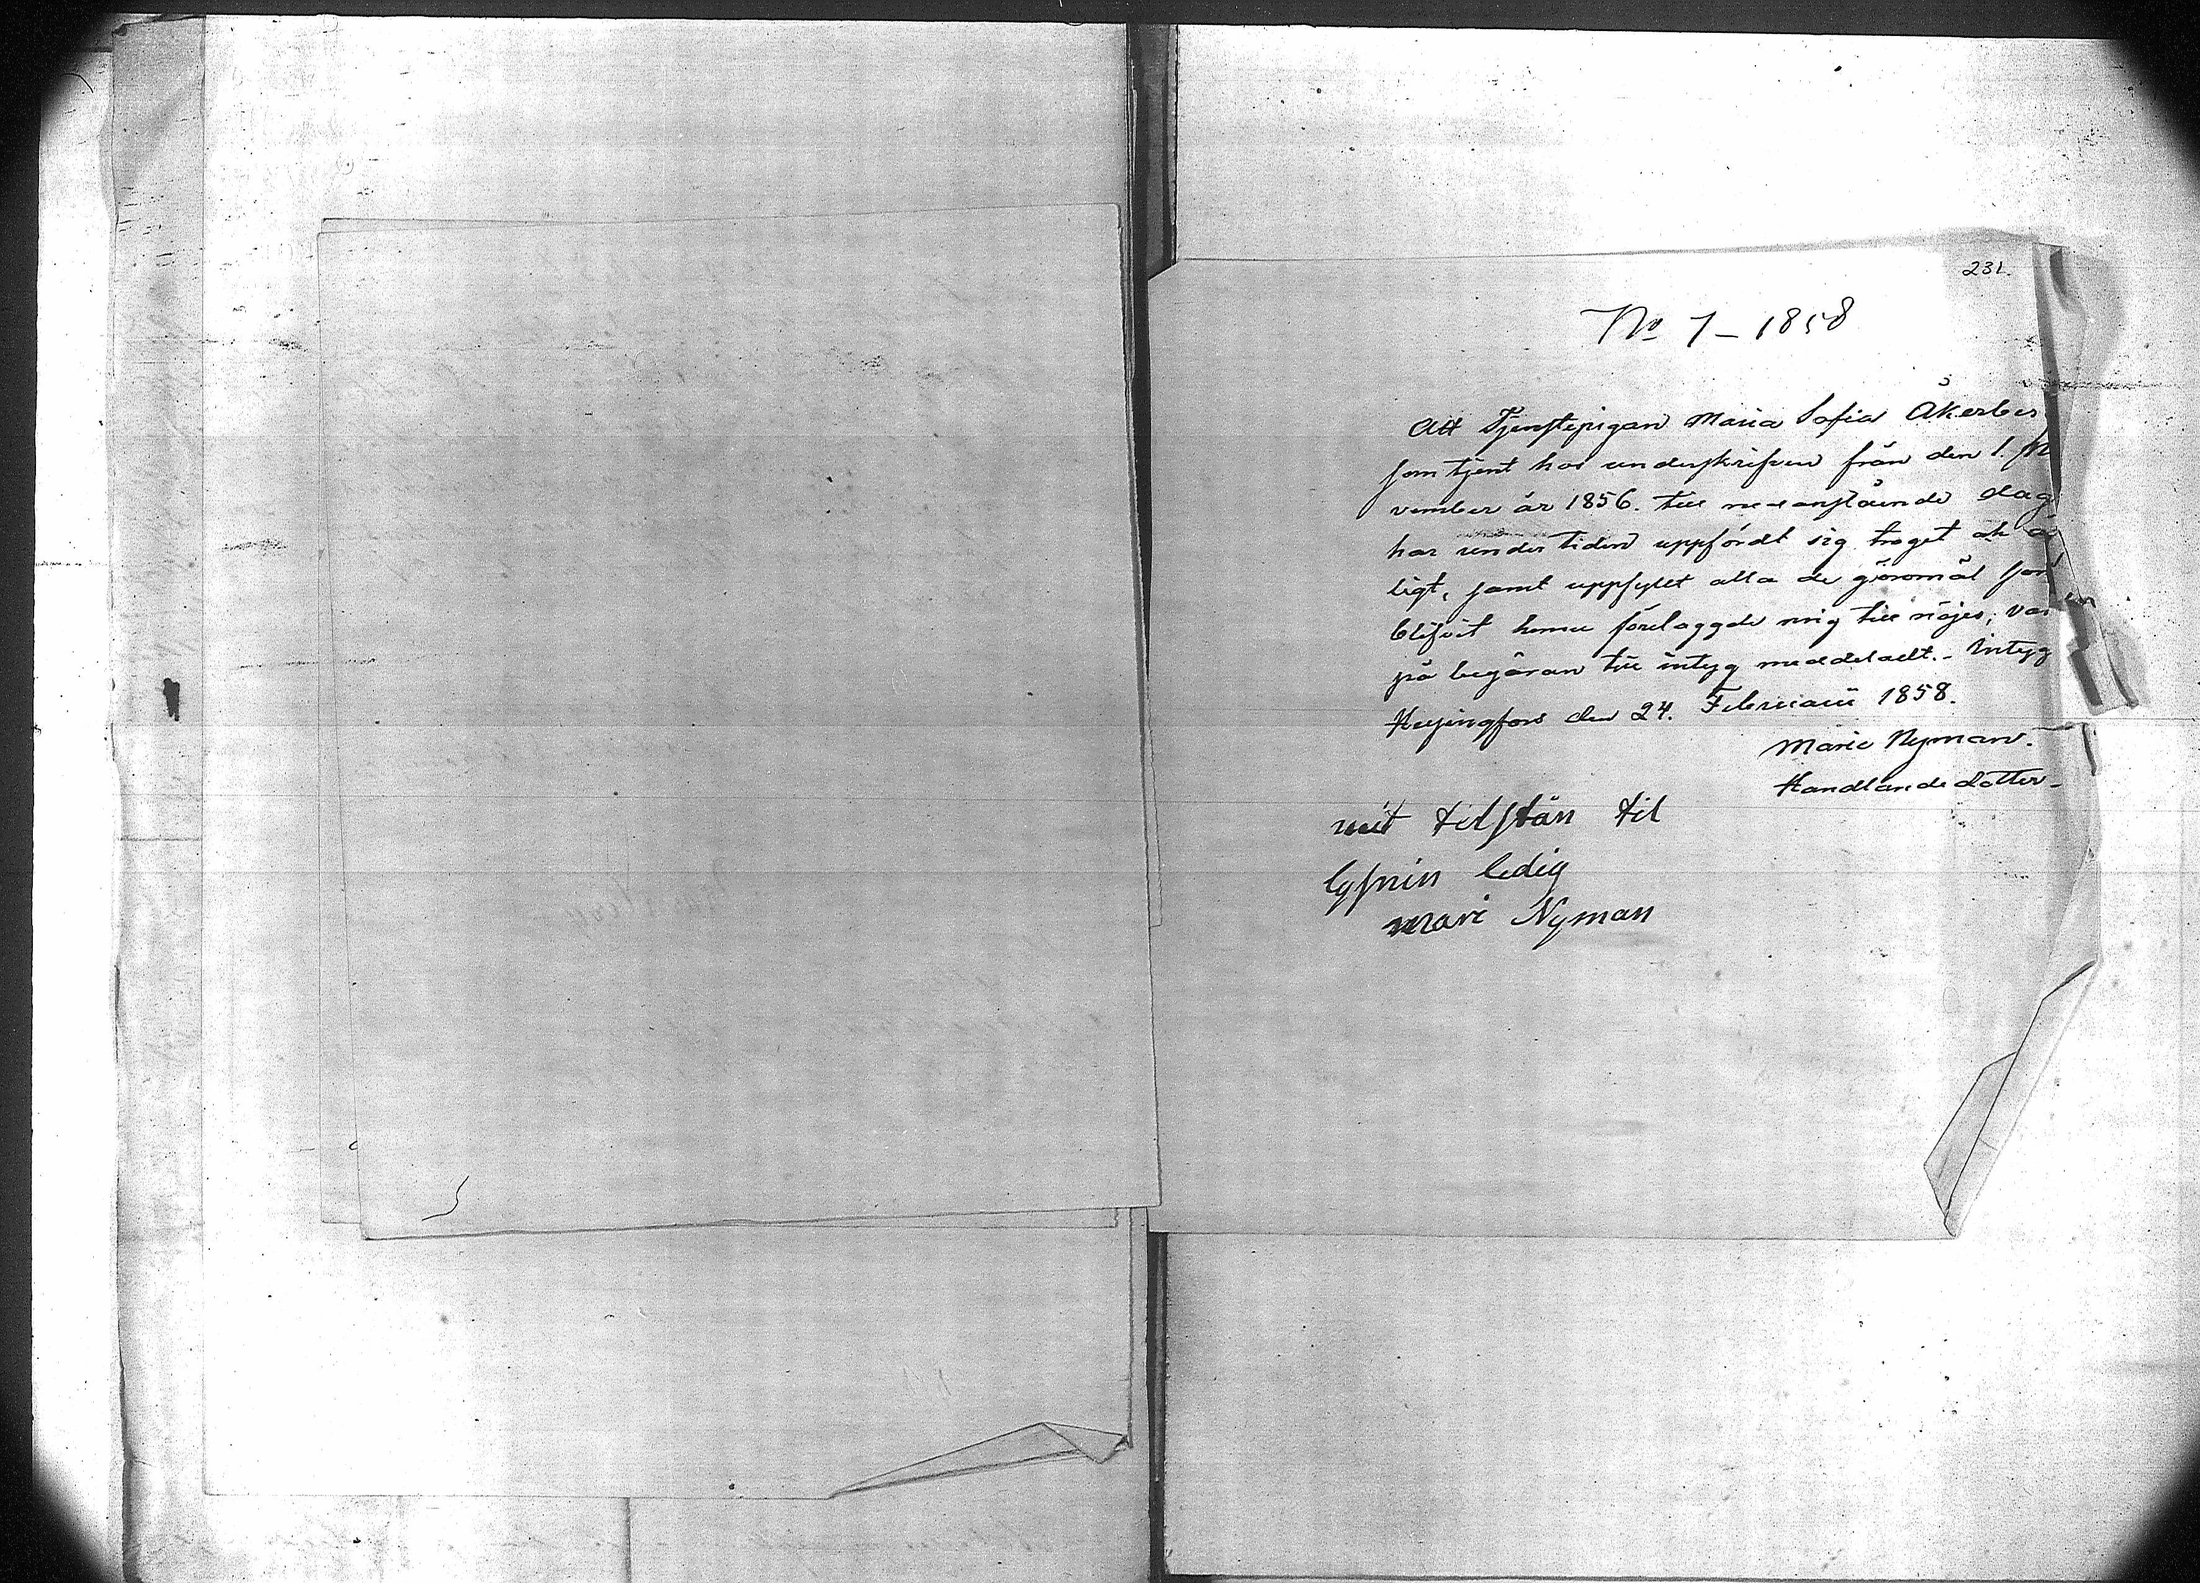 231.
No 7 – 1858
Att Tjenstepigan Maria Sofia Åkerber
som tjent hos underskrifven från den 1. No
vember år 1856. till nedanstående dag
har under tiden uppfördt sig troget och
ligt, samt uppfyllt alla de göromål som
blifvit henne förelaggde mig till nöjes, var
på begäran till intyg meddeladt. – Intyg
Helsingfors den 24. Februarii 1858.
Marie Nyman.
Handlandedotter –
mit tilstån til
lysnin ledig
mari Nyman